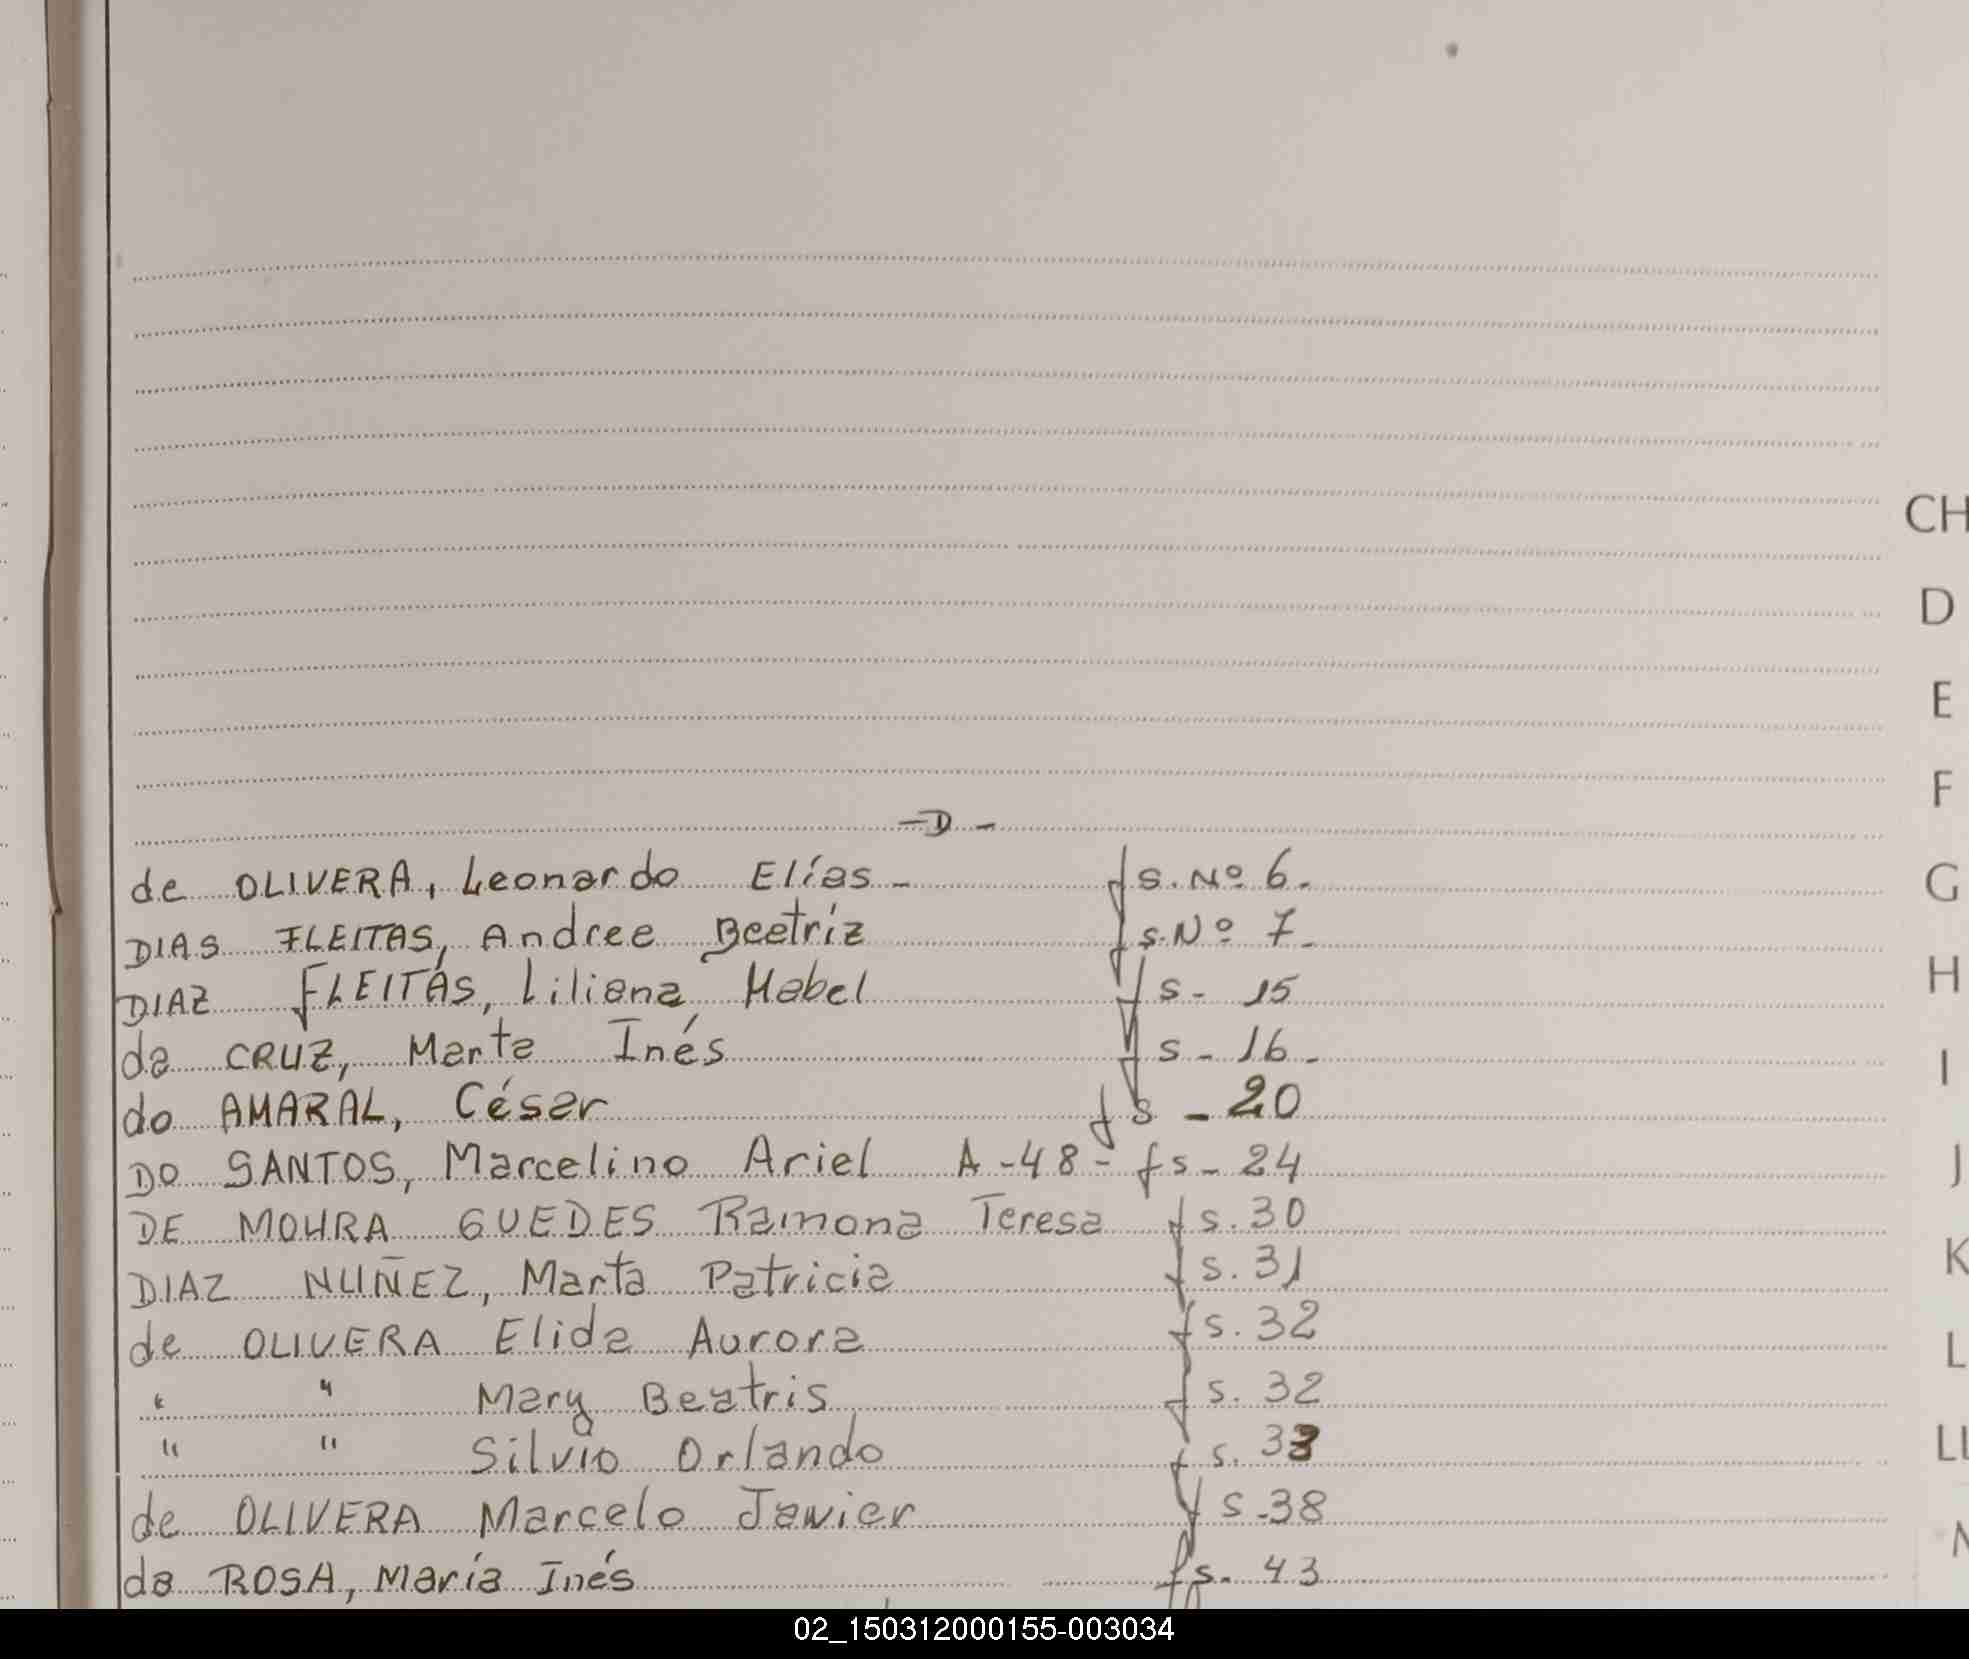 -D-
de OLIVERA, Leonardo Elías - fs. Nº 6.
DIAS FLEITAS, Andree Beatriz fs. Nº 7.
DIAZ FLEITAS, Liliana Mabel fs - 15
da CRUZ, Marta Inés fs - 16.
do AMARAL, César fs - 20
DO SANTOS, Marcelino Ariel A-48- fs - 24
DE MOURA GUEDES Ramona Teresa fs. 30
DIAZ NUÑEZ, Marta Patricia fs. 31
de OLIVERA Elida Aurora fs. 32
" " Mary Beatris fs. 32
" " Silvio Orlando fs. 33
de OLIVERA Marcelo Javier fs -38
da ROSA, María Inés fs. 43
CH
D
E
F
G
H
I
J
K
L
LL
02_150312000155-003034